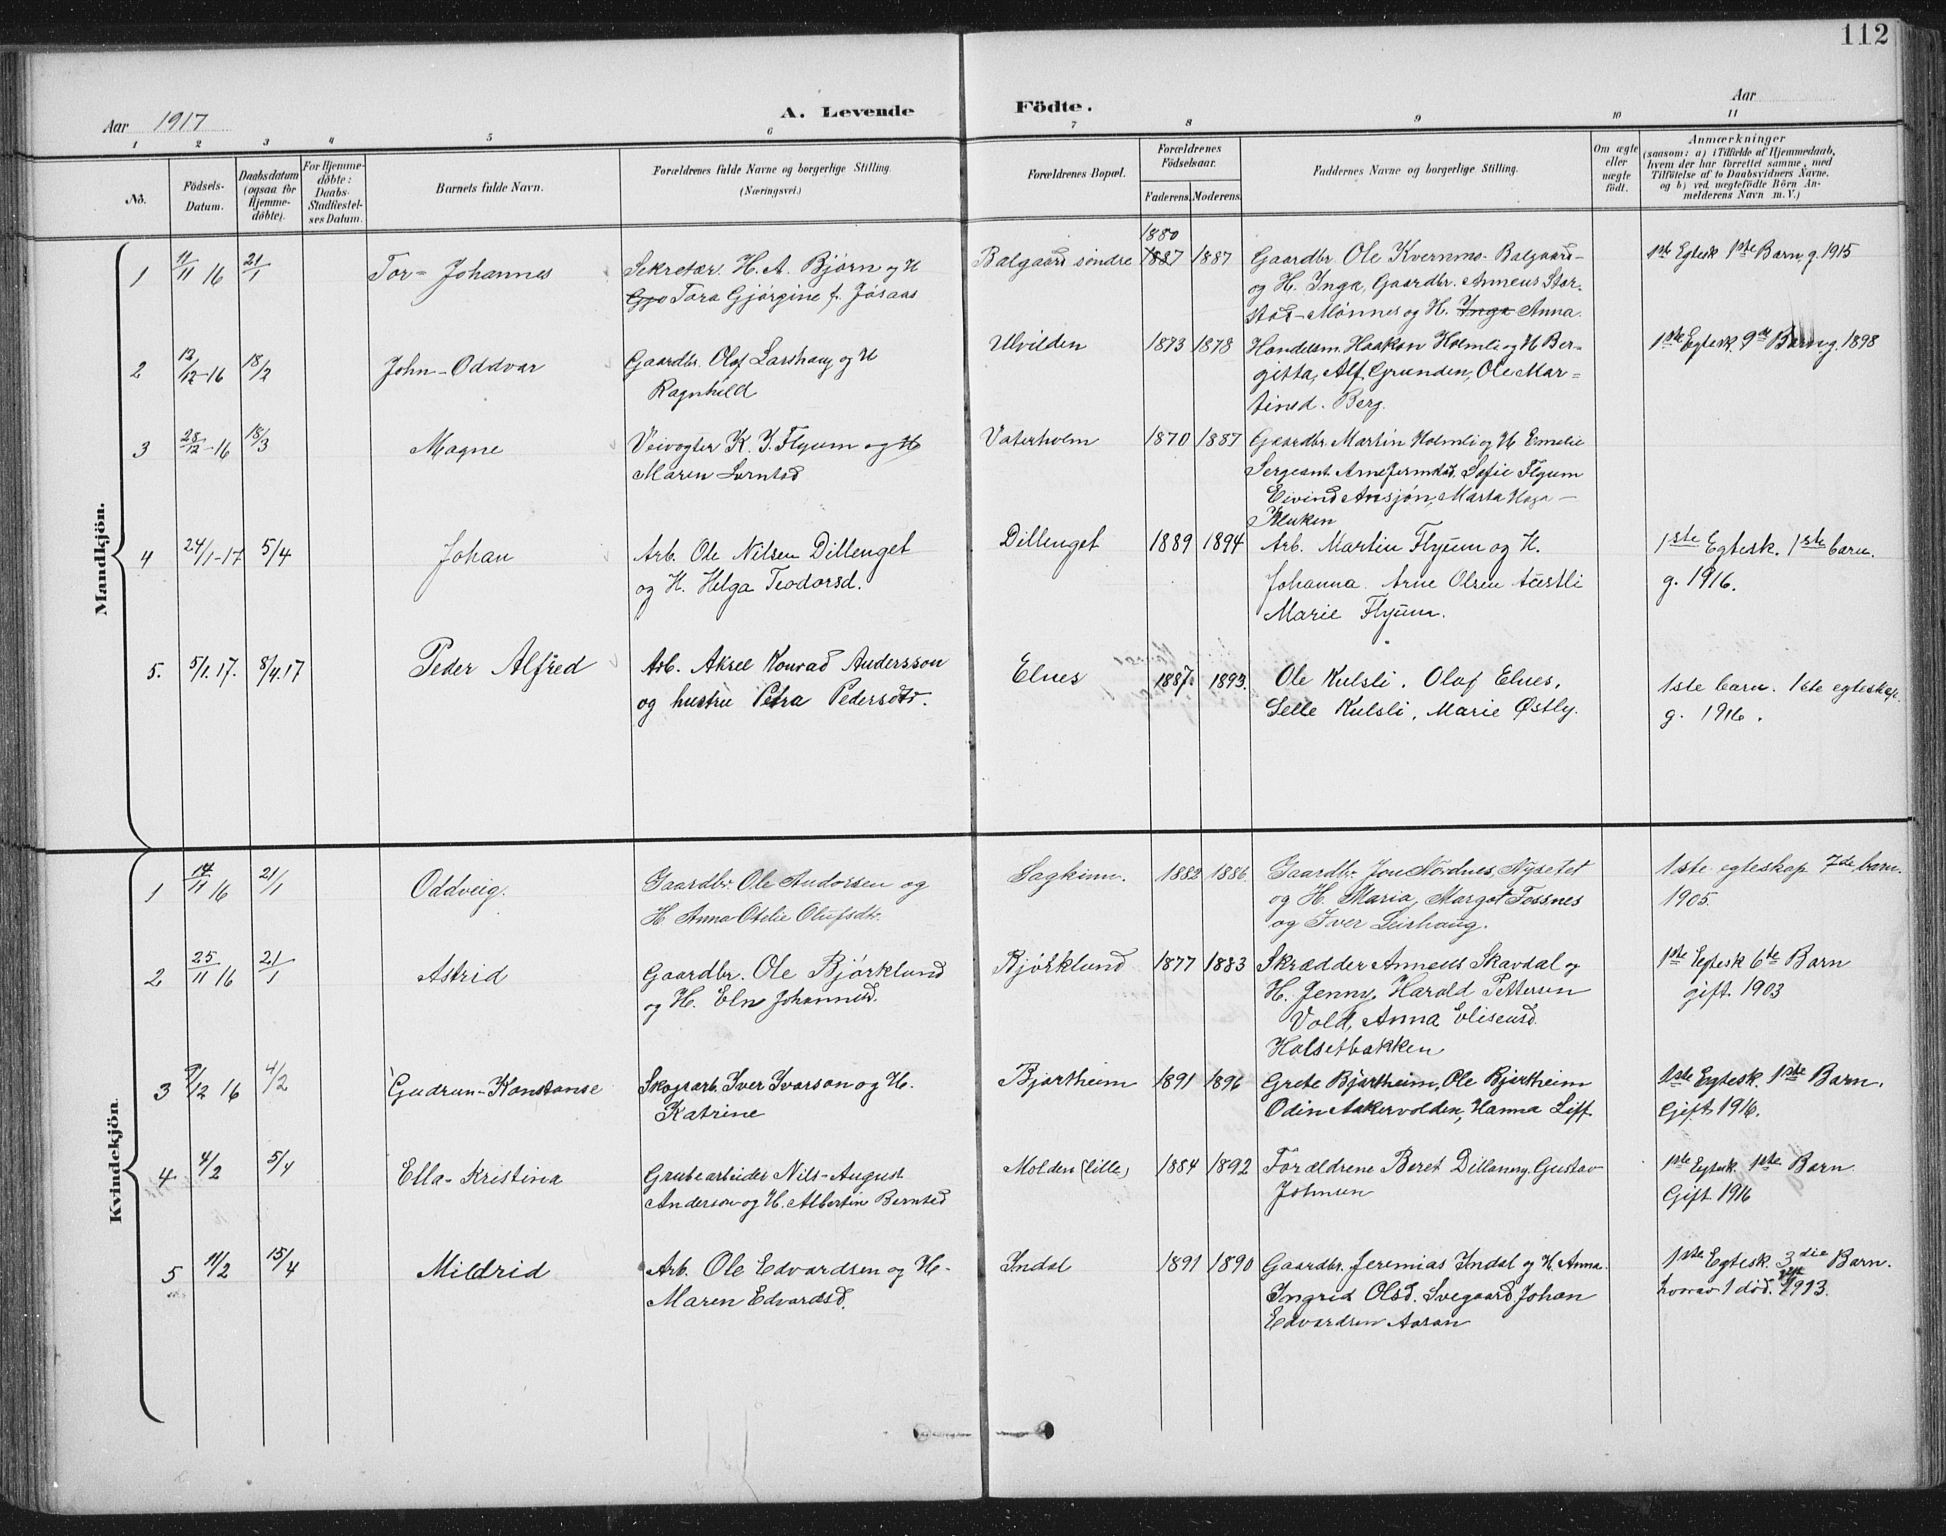 112
Aar 1917 A. Levende Födte. Aar
1 2 3 4 5 6 7 8 9 10 11
No.
Födsels-Datum.
Daabsdatum (ogsaa for Hjemme-döbte).
For Hjemme-döbte: Daabs-Stadfæstel-ses Datum.
Barnets fulde Navn.
Forældrenes fulde Navne og borgerlige Stilling. (Næringsvei.)
Forældrenes Bopæl.
Forældrenes Födselsaar.
Faderens. Moderens.
Faddernes Navne og borgerlige Stilling.
Om ægte eller uægte födt.
Anmærkninger
(saasom: a) i Tilfælde af Hjemmedaab,
hvem der har forrettet samme, med
Tilföielse af to Daabsvidners Navne,
og b) ved uægtefödte Börn An-
melderens Navn m. V.)
Mandkjön.
1 11/11 16 21/1 Tor-Johannes
Sekretær. H. A. Bjørn og H
Tora Gjørgine f. Jøsaas
Balgaard søndre 1880 1887 1887
Gaardbr. Ole Kvernmo-Balgaard-
og H. Inga, Gaardbr. Anneus Stor-
stad-Mønnes og H. Inga Anna.
1ste Egtesk 1ste Barn g. 1915
2 12/12-16 18/2 John-Oddvar
Gaardbr. Olof Larshaug og H
Ragnhild
Ulvilden 1873 1878
Handelsm. Haakon Holmli og H Ber-
gitta, Alf Grunden, Ole Mar-
tinsd. Berg.
1ste Egtesk. 9de Barn g. 1898
3 28/12-16 18/3 Magne
Veivogter K. J. Flyum og H
Maren Lorntsd
Vaterholm 1870 1887
Gaardbr. Martin Holmli og H Emelie
Sergeant Arne Jermstad, Sofie Flyum
Eivind Ansjøn, Marta Haga-
Kluken
4 24/1-17 5/4 Johan
Arb. Ole Nilsen Dillenget
og H. Helga Teodorsd.
Dillenget 1889 1894
Arb. Martin Flyum og H.
Johanna. Arne Olsen Austli
Marie Flyum.
1ste Egtesk. 1ste barn.
g. 1916.
5. 5/1.17. 8/4.17 Peder Alfred
Arb. Aksel Konrad Andersson
og hustru Petra Pedersdtr.
Elnes 1887. 1893.
Ole Kulsli. Olof Elnes.
Selle Kulsli, Marie Østly.
1ste barn. 1ste egteskap.
g. 1916.
Kvindekjön.
1 14/11 16 21/1 Oddveig.
Gaardbr. Ole Andorsen og
H. Anna Otelie Olufsdtr.
Sagkinn. 1882 1886.
Gaardbr. Jon Nordnes, Nysetet
og H. Maria, Margot Fossnes
og Iver Leirhaug.
1ste egteskap 7de barn.
1905.
2 25/11 16 21/1 Astrid
Gaardbr. Ole Bjørklund
og H. Eln Johannesd.
Bjørklund 1877 1883
Skrædder Anneus Skavdal og
H. Jenny, Harald Pettersen
Vold, Anna Eliseusd.
Halsetbakken
1ste Egtesk 6te Barn
gift. 1903
3 9/12 16 4/2 Gudrun-Konstanse
Skogsarb. Iver Ivarson og H.
Katrine
Bjartheim 1891 1896
Grete Bjartheim, Ole Bjertheim
Odin Aakervolden, Hanna Liff.
1ste Egtesk. 1ste Barn.
Gift 1916.
4 4/2 5/4 Ella-Kristina
Grubearbeider Nils-August
Anderson og H. Albertin Berntsd
Molden (lille) 1884 1892
Forældrene Beret Dillanny, Gustav
Johnsen
1ste Egtesk 1ste Barn.
Gift 1916
5 11/2 15/4 Mildrid
Arb. Ole Edvardsen og H-
Maren Edvardsd.
Indal 1891 1890
Gaardbr. Jeremias Indal og H. Anna.
Ingrid Olsd. Svegaard, Johan
Edvardsen Aasan
1ste Egtesk. 3die Barn.
hvorav 1 død. 1913.